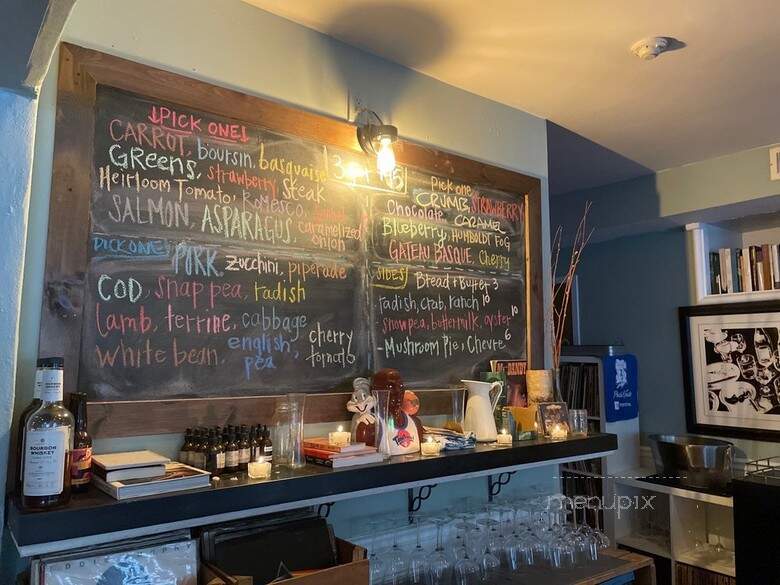 ↓PICK ONE↓
CARROT, boursin, basquaise
GREENS, strawberry, steak
Heirloom Tomato, Romesco,
SALMON, ASPARAGUS, caramelized onion
PICK ONE
PORK, zucchini, piperade
COD, snap pea, radish
lamb, terrine, cabbage
white bean, english pea, cherry tomato
Pick one
CRUMB, STRAWBERRY
Chocolate, CARAMEL
Blueberry, HUMBOLDT FOG
GATEAU BASQUE, Cherry
SIDES
Bread & Butter 3
radish, crab, ranch 10
snow pea, buttermilk, oyster 10
Mushroom Pie, Chevre 6
BOURBON
WHISKEY
menupix